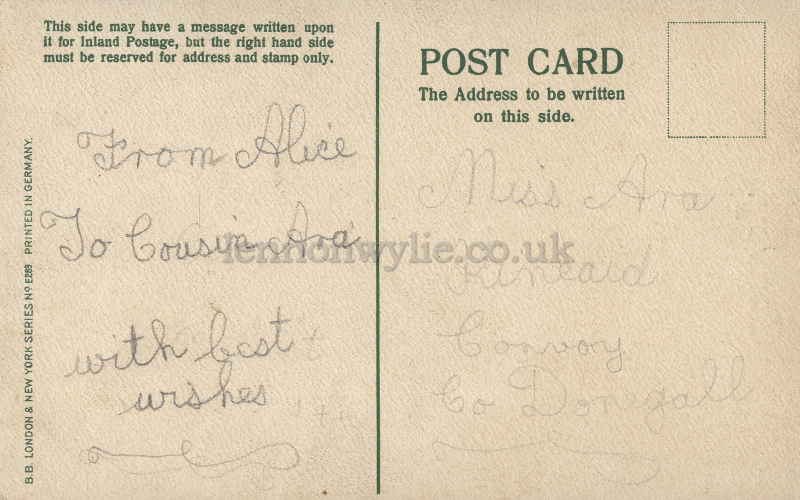 This side may have a message written upon
it for Inland Postage, but the right hand side
must be reserved for address and stamp only.
From Alice
To Cousin Ara
with best
wishes
B.B. LONDON & NEW YORK SERIES No E289 PRINTED IN GERMANY.
POST CARD
The Address to be written
on this side.
Miss Ara
Kincaid
Convoy
Co Donegall
lennonwylie.co.uk